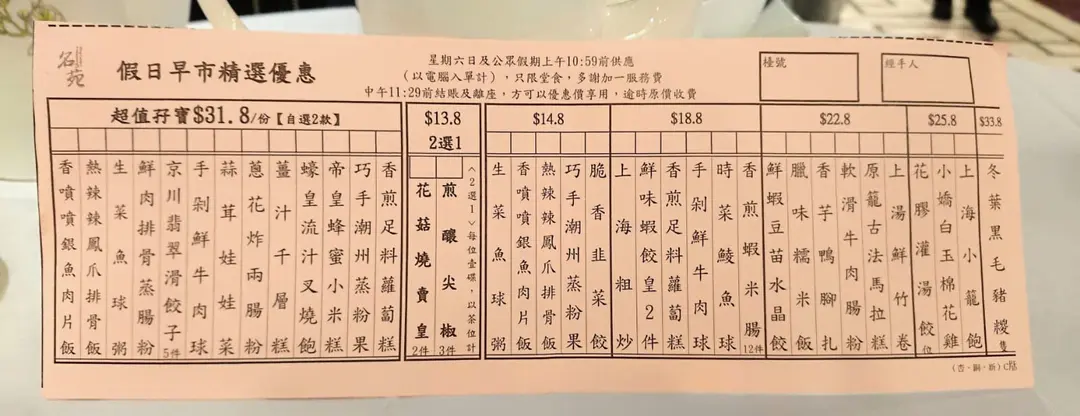 名苑
假日早市精選優惠
星期六日及公眾假期上午10:59前供應
(以電腦入單計),只限堂食,多謝加一服務費
中午11:29前結賬及離座,方可以優惠價享用,逾時原價收費
檯號
經手人
超值孖寶$31.8/份【自選2款】
香噴噴銀魚肉片飯
熱辣辣鳳爪排骨飯
生菜魚球粥
鮮肉排骨蒸腸粉
京川翡翠滑餃子5件
手剁鮮牛肉球
蒜茸娃娃菜
蔥花炸兩腸粉
薑汁千層糕
蠔皇流汁叉燒飽
帝皇蜂蜜小米糕
巧手潮州蒸粉果
香煎足料蘿蔔糕
$13.8
2選1
花菇燒賣皇2件
煎釀尖椒3件
<2選1>每位壹碟,以茶位計
$14.8
生菜魚球粥
香噴噴銀魚肉片飯
熱辣辣鳳爪排骨飯
巧手潮州蒸粉果
脆香韭菜餃
$18.8
上海粗炒
鮮味蝦餃皇2件
香煎足料蘿蔔糕
手剁鮮牛肉球
時菜鯪魚球
香煎蝦米腸12件
$22.8
鮮蝦豆苗水晶餃
臘味糯米飯
香芋鴨腳扎
軟滑牛肉腸粉
原籠古法馬拉糕
上湯鮮竹卷
$25.8
花膠灌湯餃位
小嬌白玉棉花雞
上海小籠飽
$33.8
冬葉黑毛豬糉隻